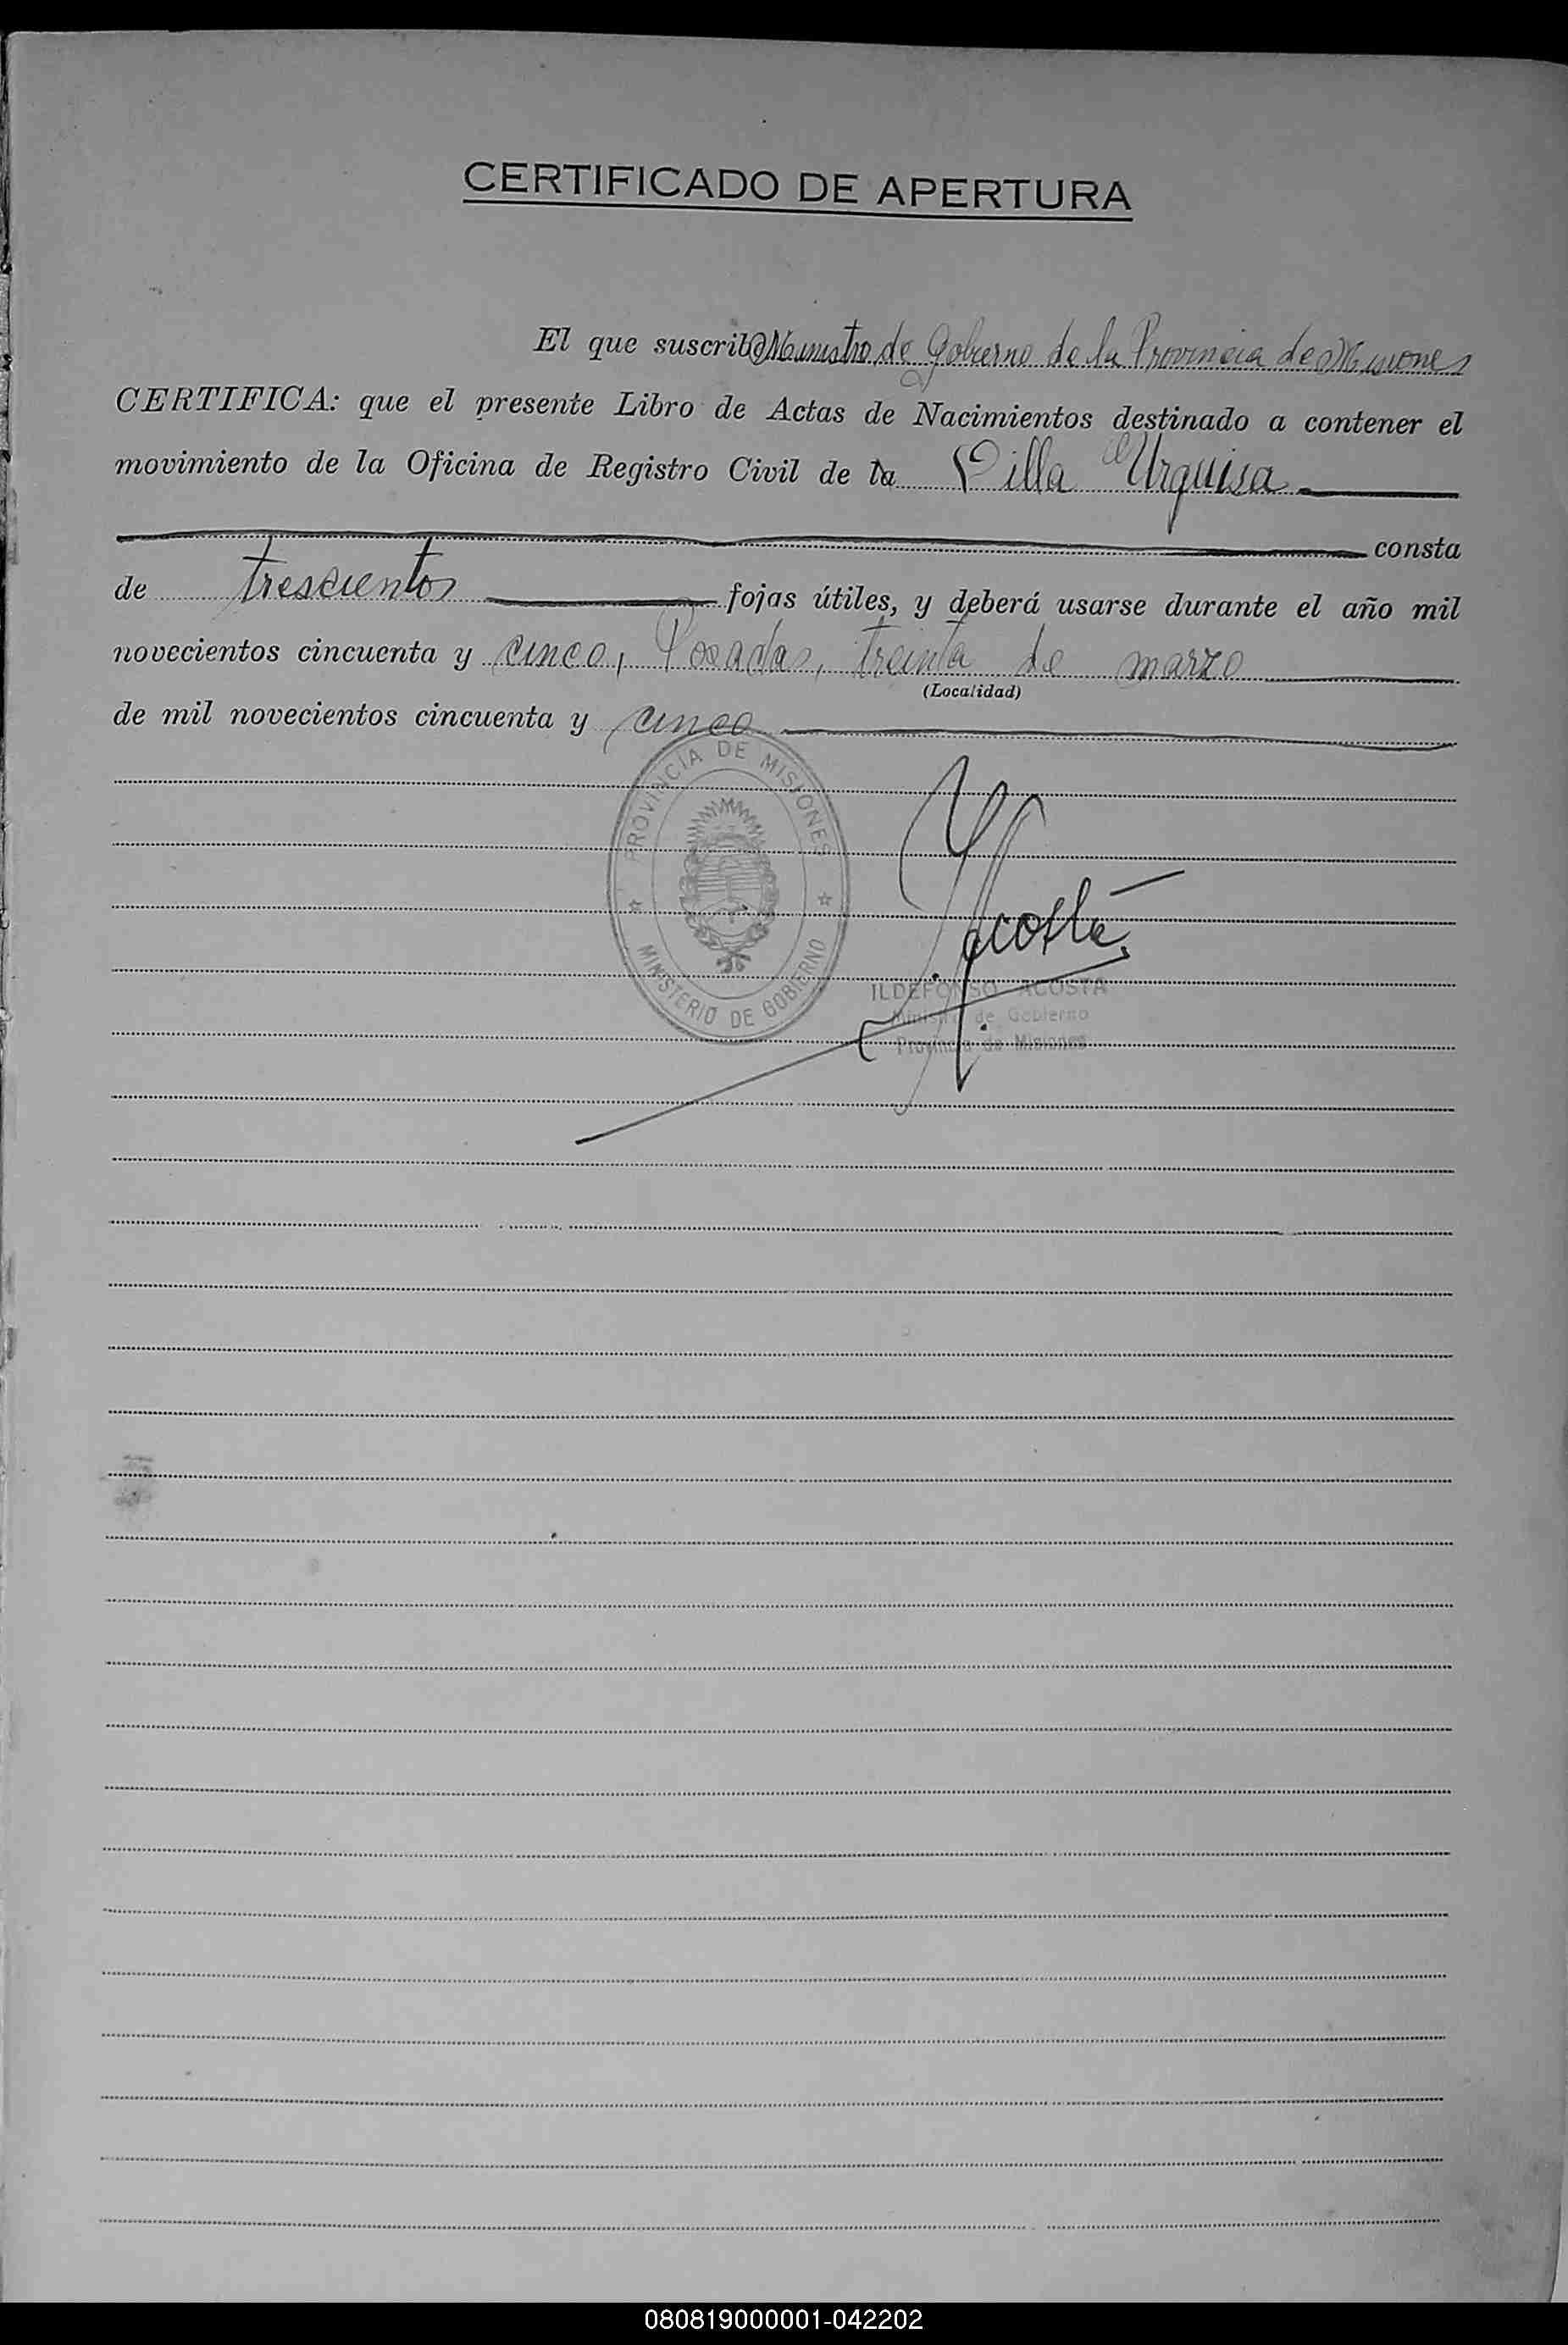 CERTIFICADO DE APERTURA
El que suscribe Ministro de Gobierno de la Provincia de Misiones
CERTIFICA: que el presente Libro de Actas de Nacimientos destinado a contener el
movimiento de la Oficina de Registro Civil de la Villa Urquisa
consta
de trescientos fojas útiles, y deberá usarse durante el año mil
novecientos cincuenta y cinco, Posadas, treinta de marzo
(Localidad)
de mil novecientos cincuenta y cinco
PROVINCIA DE MISIONES
MINISTERIO DE GOBIERNO
Acosta
ILDEFONSO ACOSTA
Ministro de Gobierno
Provincia de Misiones
080819000001-042202